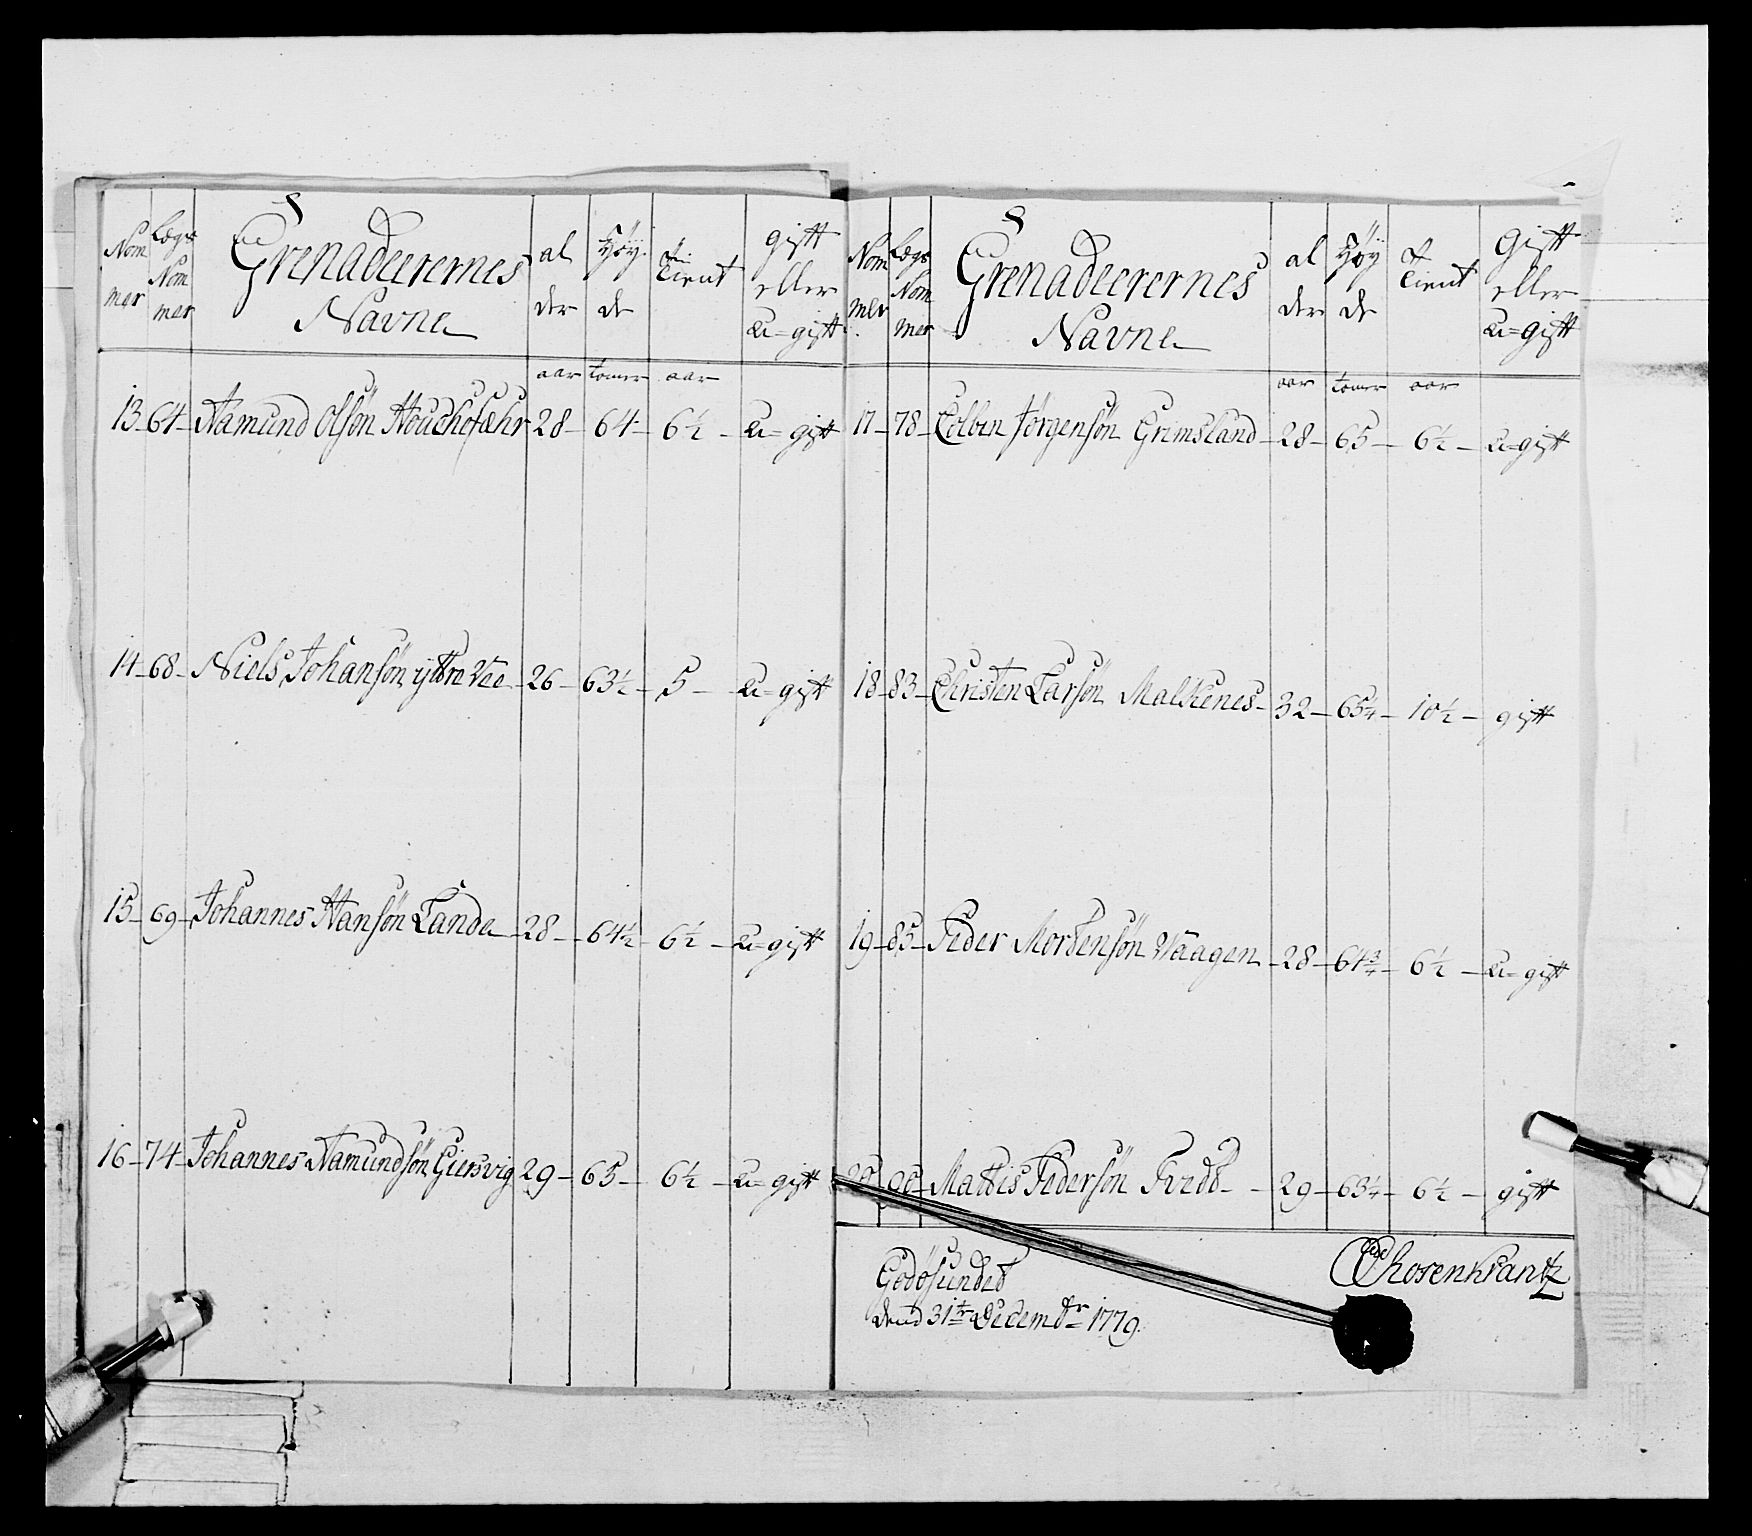 Nom
mer
Lægs
Nom
mer
Grenadeerernes
Navne
al
der
Høy
de
tient
gift
eller
u=gift
aar tomer aar
13 64 Aamund Olsön 28 64 6½ u=gift
14 68 Niels Johansön yttre Vee 26 63½ 5 u=gift
15 69 Johannes Hansön Lande 28 64½ 6½ u=gift
16 74 Johannes Aamundsön Giersvig 29 65 6½ u=gift
Nom
mer
Lægs
Nom
mer
Grenadeerernes
Navne
al
der
Høy
de
tient
Gift
eller
u=gift
aar tomer aar
17 78 Colben Jörgensön Grimsland 28 65 6½ u=gift
18 83 Christen Larsön Malkenes 32 65¼ 10½ gift
19 85 Peder Mortensön Vaagen 28 64¾ 6½ u=gift
20 90 Mattis Pedersön 29 63¼ 6½ gift
Godösundet
dend 31te Decembr 1779.
Rosenkrantz